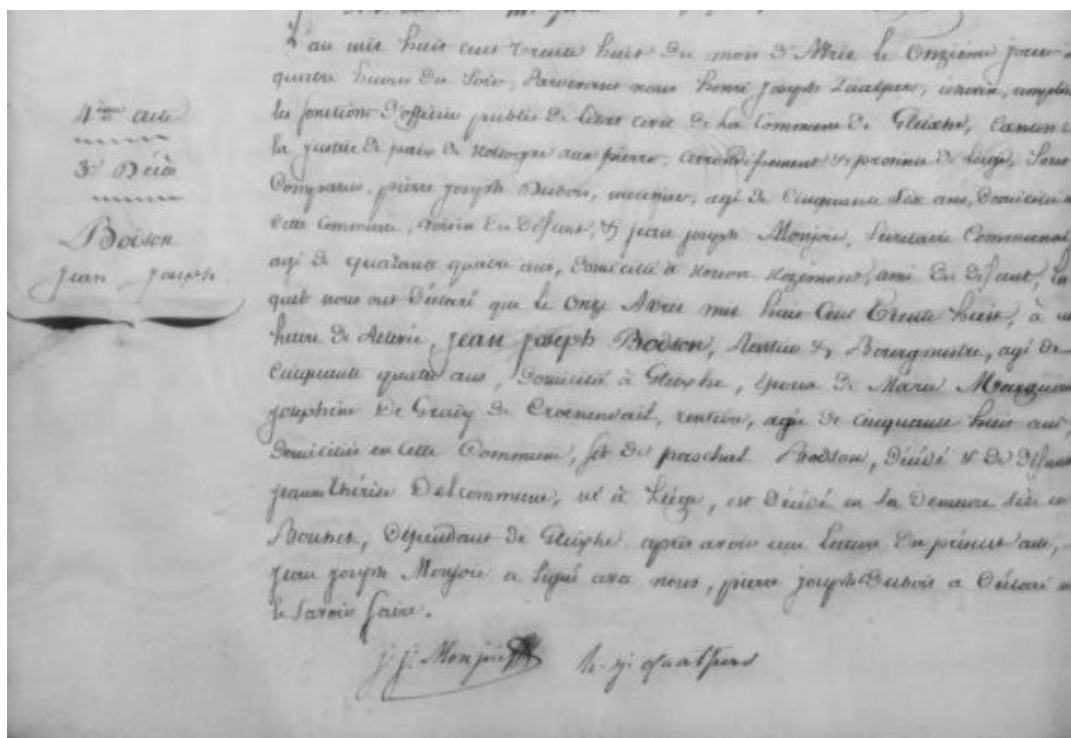 4ème acte
3e Décès
Bodson
Jean Joseph
L'an mil huit cent trente huit du mois d'Avril le onzième jour à
quatre heures du soir, pardevant nous henri Joseph Quatpers, échevin, remplis
les fonctions d'officier public de l'état civil de la Commune de Gleixhe, Canton
la justice de paix de hollogne aux pierres, arrondissement & province de Liége, Sont
Comparus, pierre joseph Dubois, agé de Cinquante Six ans, domicilié en
Cette Commune, voisin du défunt, & jean joseph Monjoie, Secrétaire Communal,
agé de quarante quatre ans, domicilié à horion hozémont, ami du défunt, Les
quels nous ont déclaré que le onze Avril mil huit Cent Trente huit, à un
heure de relevée, jean joseph Bodson, Rentier & Bourgmestre, agé de
Cinquante quatre ans, domicilié à Gleixhe, époux de Marie
josephine De Gruÿ de rentière, agée de cinquante huit ans,
domiciliée en cette Commune, fils de paschal Bodson, décédé & de défunte
jeanne thérèse Delcommune, né à Liége, est décédé en Sa demeure Sise en
dépendant de Gleixhe. après avoir eu Lecture du présent acte,
jean joseph Monjoie a Signé avec nous, pierre joseph Dubois a déclaré ne
le Savoir faire.
j. j. Monjoie h. j. Quatpers